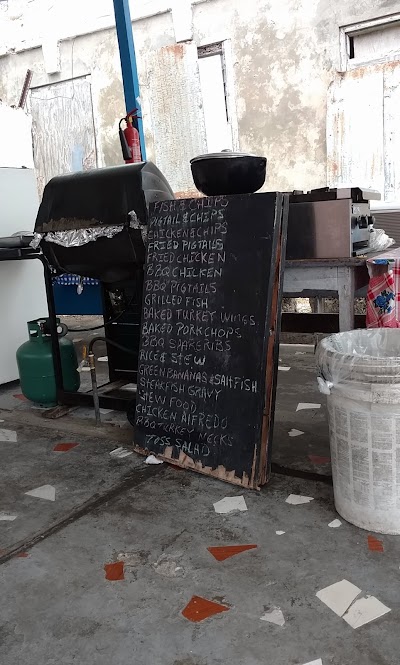 FISH & CHIPS
PIGTAIL & CHIPS
CHICKEN & CHIPS
FRIED PIGTAILS
FRIED CHICKEN
BBQ CHICKEN
BBQ PIGTAILS
GRILLED FISH
BAKED TURKEY WINGS
BAKED PORKCHOPS
BBQ SPARERIBS
RICE & STEW
GREEN BANANAS & SALTFISH
STEAKFISH GRAVY
STEW FOOD
CHICKEN ALFREDO
BBQ TURKEY NECKS
TOSS SALAD